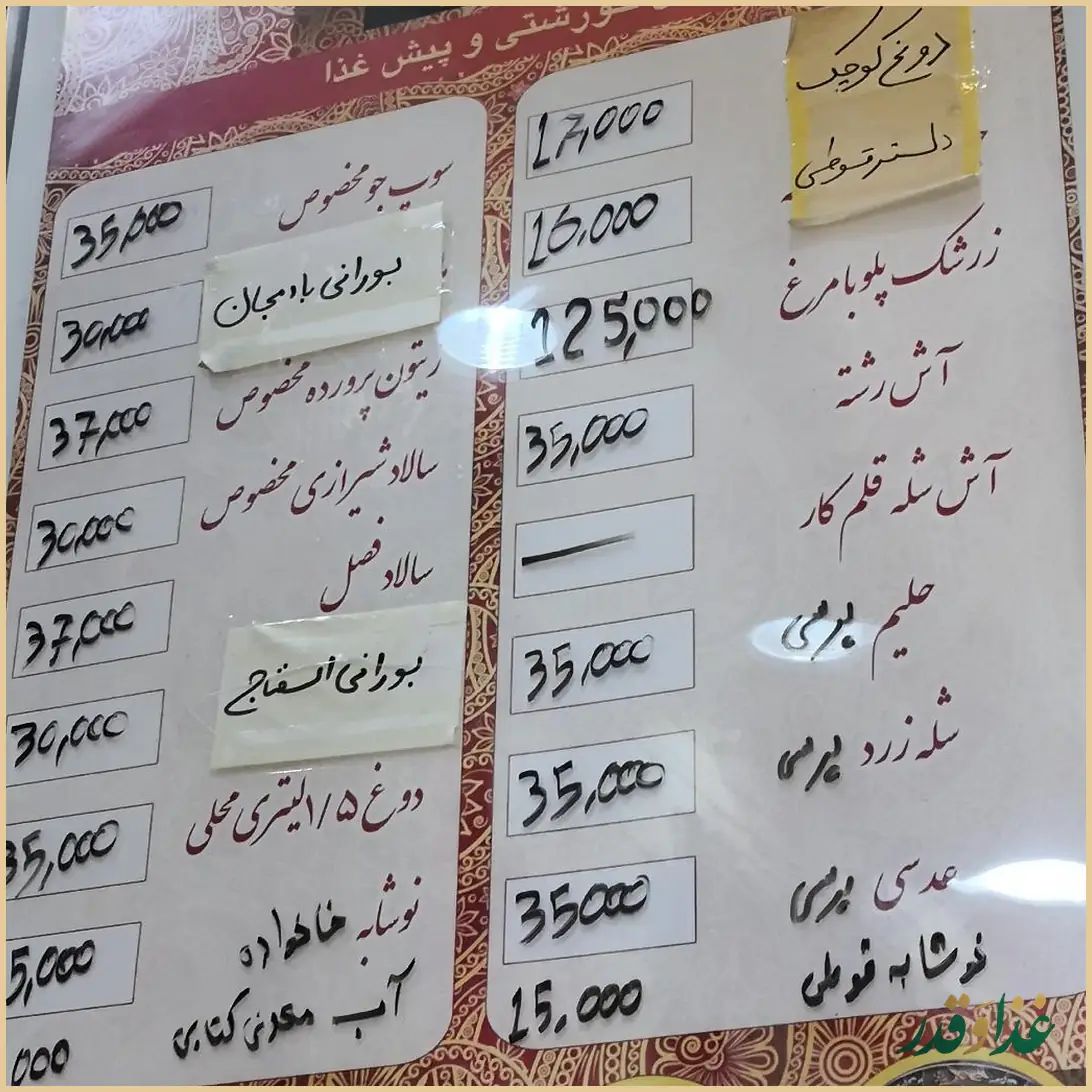 خورشتی و پیش غذا
دوغ کوچک 17,000
دلستر قوطی 16,000
زرشک پلو با مرغ 125,000
آش رشته 35,000
آش شله قلم کار —
حلیم پرسی 35,000
شله زرد پرسی 35,000
عدسی پرسی 35000
نوشابه قوطی 15,000
سوپ جو مخصوص 35,000
بورانی بادمجان 30,000
زیتون پرورده مخصوص 37,000
سالاد شیرازی مخصوص 30,000
سالاد فصل 37,000
بورانی اسفناج 30,000
دوغ ۱/۵ لیتری محلی 35,000
نوشابه خانواده 5,000
آب معدنی کتابی 000
غذا و قدر